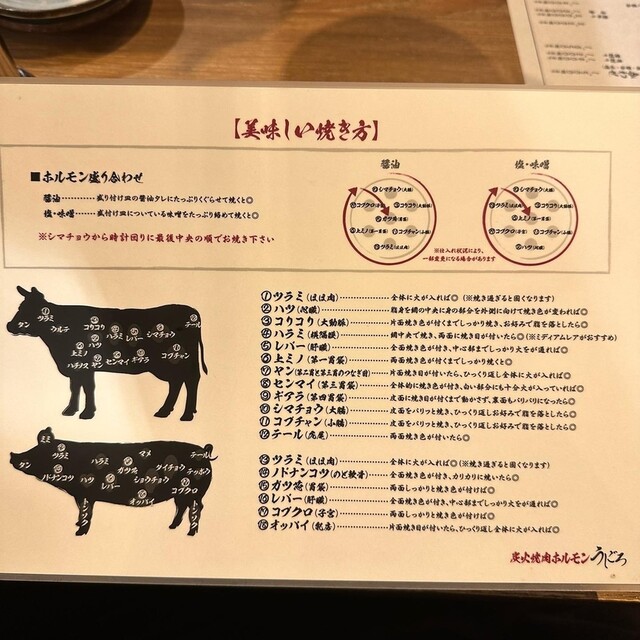 【美味しい焼き方】
■ホルモン盛り合わせ
醤油 ―― 盛り付け皿の醤油タレにたっぷりくぐらせて焼くと◎
塩・味噌 ―― 盛付け皿についている味噌をたっぷり絡めて焼くと◎
※シマチョウから時計回りに最後中央の順でお焼き下さい
醤油
⑩シマチョウ(大腸)
⑰コブクロ(子宮)
③コリコリ(大動脈)
⑮ガツ芯(胃袋)
⑥上ミノ(第一胃袋)
⑪コプチャン(小腸)
⑬ツラミ(ほほ肉)
塩・味噌
⑩シマチョウ(大腸)
①ツラミ(ほほ肉)
③コリコリ(大動脈)
⑥上ミノ(第一胃袋)
⑰コブクロ(子宮)
⑪コプチャン(小腸)
②ハツ(心臓)
※仕入れ状況により、
一部変更になる場合があります
①ツラミ(ほほ肉)……全体に火が入れば◎(※焼き過ぎると固くなります)
②ハツ(心臓)……脂身を網の中央に身の部分を外側に向けて焼き色が変われば◎
③コリコリ(大動脈)……片面焼き色が付くまでしっかり焼き、お好みで脂を落としたら◎
④ハラミ(横隔膜)……網中央で焼き、両面に焼き目が付いたら◎(※ミディアムレアがおすすめ)
⑤レバー(肝臓)……全面焼き色が付き、中心部までしっかり火をが通れば◎
⑥上ミノ(第一胃袋)……両面焼き色が付くまでしっかり焼くと◎
⑦ヤン(第二胃と第三胃のつなぎ目)……片面焼き目が付いたら、ひっくり返し全体に火が入れば◎
⑧センマイ(第三胃袋)……全体的に焼き色が付き、白い部分にも十分火が入っていれば◎
⑨ギアラ(第四胃袋)……皮面に焼き目が付くまで動かさず、裏面もパリパリになったら◎
⑩シマチョウ(大腸)……皮面をパリッと焼き、ひっくり返しお好みで脂を落としたら◎
⑪コプチャン(小腸)……皮面をパリッと焼き、ひっくり返しお好みで脂を落としたら◎
⑫テール(尻尾)……両面焼き色が付いたら◎
⑬ツラミ(ほほ肉)……全体に火が入れば◎(※焼き過ぎると固くなります)
⑭ノドナンコツ(のど軟骨)……全面焼き色が付き、カリカリに焼いたら◎
⑮ガツ芯(胃袋)……両面しっかりと焼き色が付けば◎
⑯レバー(肝臓)……全面焼き色が付き、中心部までしっかり火をが通れば◎
⑰コブクロ(子宮)……両面しっかりと焼き色が付けば◎
⑱オッパイ(乳房)……片面焼き目が付いたら、ひっくり返し全体に火が入れば◎
タン
①ツラミ
ウルテ
③コリコリ
②ハツ
④ハラミ
⑤レバー
⑩シマチョウ
⑫テール
⑥上ミノ
ハチノス
⑦ヤン
⑧センマイ
⑨ギアラ
⑪コプチャン
ミミ
タン
⑬ツラミ
⑭ノドナンコツ
ハツ
ハラミ
⑮ガツ芯
⑯レバー
マメ
ショウチョウ
ダイチョウ
テッポウ
テール
⑰コブクロ
⑱オッパイ
トンソク
トンソク
炭火焼肉ホルモン うしごろ